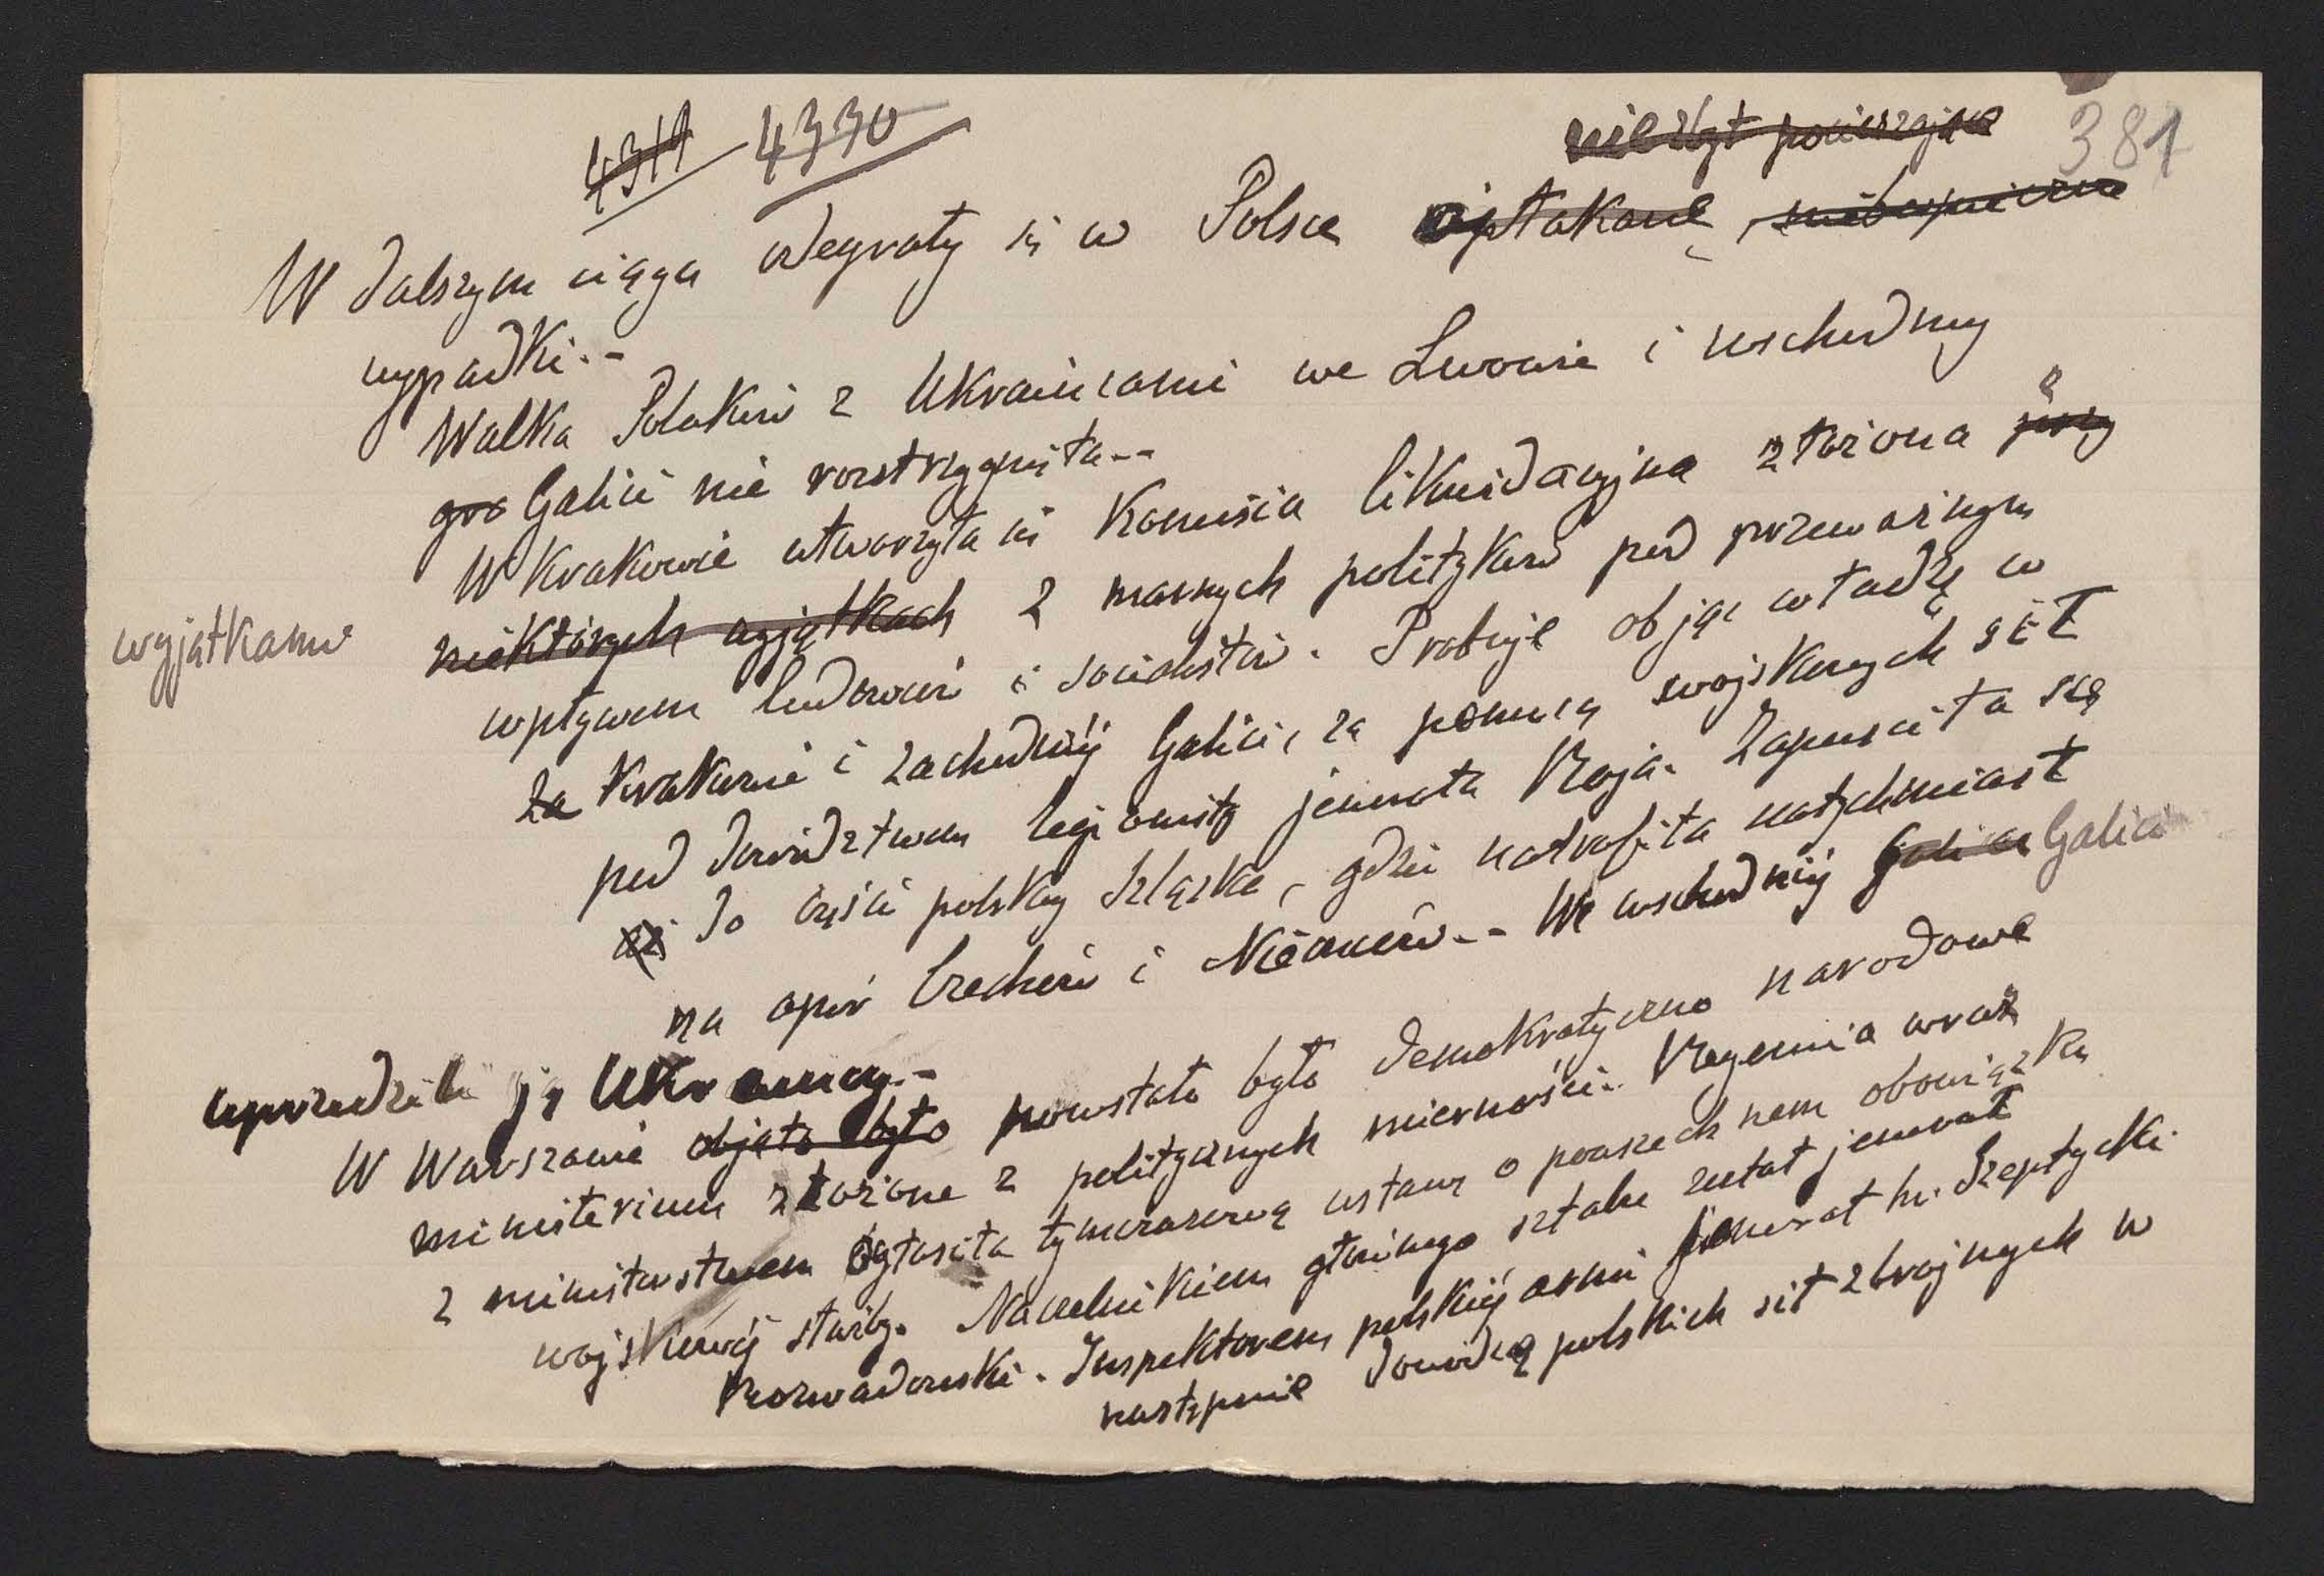 4319 4330 381
nie zbyt pocieszające
W dalszym ciągu odegrały się w Polsce opłakane, niebezpieczne
wypadki.-
Walka Polaków z Ukraińcami we Lwowie i wschodniej
Galicii nie rozstrzygnięta.-
W Krakowie utworzyła się Komisia likwidacyjna złożona z
niektórych wyjątkach z marnych polityków pod przeważnym
wyjątkami
wpływem ludowców i socialistów. Probuje objąć władzę w
za Krakowie i zachodniéj Galicii, za pomocą wojskowych sił
pod dowództwem legionisty jenerała Roja. Zapuściła się
aż do części polskiej Szląska, gdzie natrafiła natychmiast
na opór Czechów i Niemców.- We wschodniéj Galicii Galicii
uprzedzili ją Ukraincy.-
W Warszawie objęto było powstało było demokratyczno narodowe
ministerium złożone z politycznych mierności. Regencia wraz
z ministerstwem ogłosiła tymczasową ustawę o powszechnem obowiązku
wojskowéj służby. Naczelnikiem głównego sztabu został jenerał
Rozwadowski. Inspektorem polskiéj armii jenerał hr. Szeptycki.
następnie dowódcą polskich sił zbrojnych w